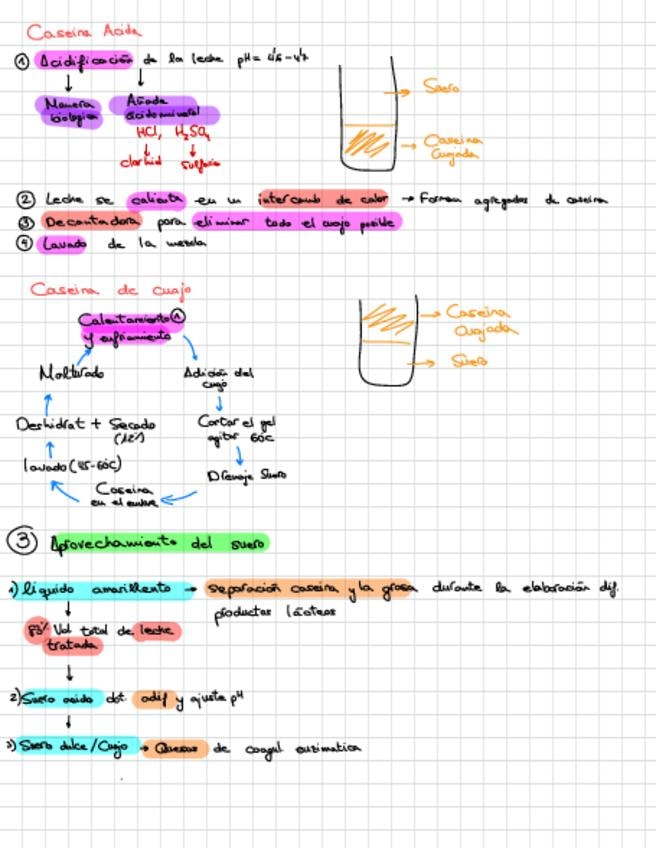 Caseina Acida
① Acidificación de la leche pH= 4'6-4'7
Manera biologica
Añade ácido mineral
HCl, H₂SO₄
clorhid sulfuric
Suero
Caseina Cuajada
② Leche se calienta en un intercamb de calor → Forman agregados de caseina
③ Decantadora para eliminar todo el cuajo posible
④ Lavado de la mezcla
Caseina de cuajo
Calentamiento ①
y enfriamiento
Adición del
cuajo
Cortar el gel
agitar 60C
Drenaje Suero
Caseina
en el
lavado (45-60C)
Deshidrat + Secado
(12%)
Molturado
Caseina
Cuajada
Suero
③ Aprovechamiento del suero
1) líquido amarillento → separación caseina y la grasa durante la elaboración dif.
productos lácteos
83% Vol total de leche
tratada
2) Suero acido dot. adif y ajuste pH
3) Suero dulce/Cuajo → Quesos de coagul enzimatica